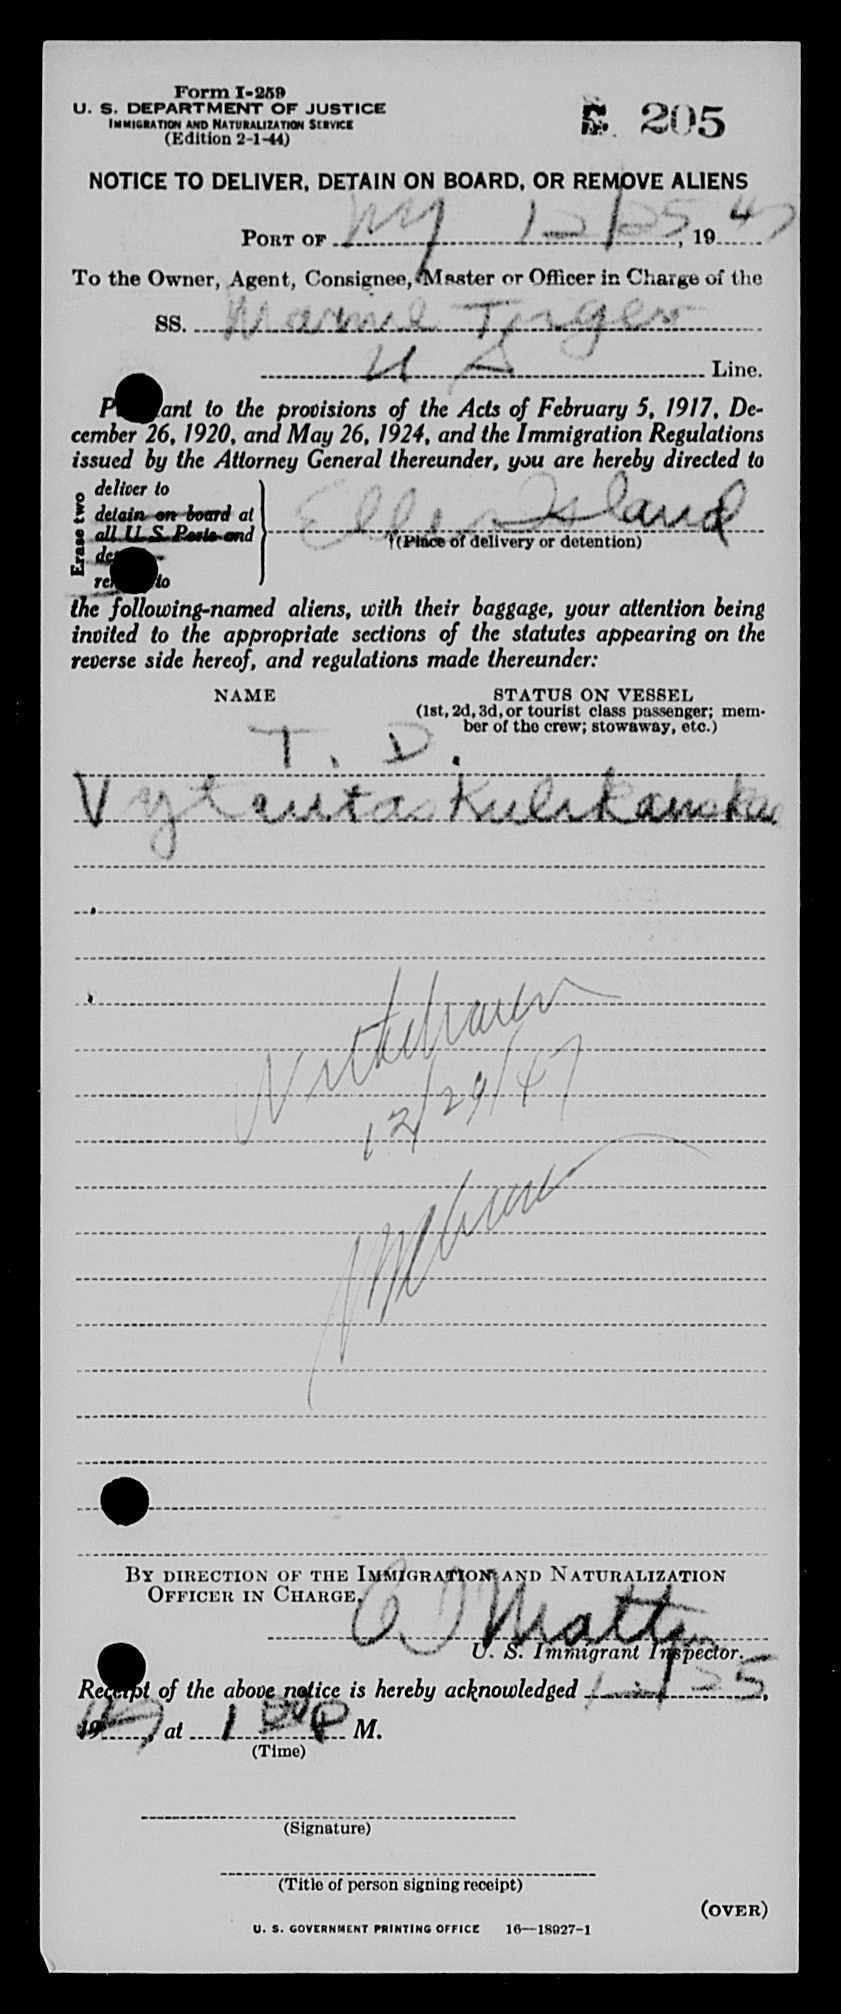 Form I-259
U. S. DEPARTMENT OF JUSTICE
IMMIGRATION AND NATURALIZATION SERVICE
(Edition 2-1-44)
205
NOTICE TO DELIVER, DETAIN ON BOARD, OR REMOVE ALIENS
PORT OF NY 12/25, 1947
To the Owner, Agent, Consignee, Master or Officer in Charge of the
SS. Marine
U S Line.
P ant to the provisions of the Acts of February 5, 1917, De-
cember 26, 1920, and May 26, 1924, and the Immigration Regulations
issued by the Attorney General thereunder, you are hereby directed to
Erase two
deliver to
detain on board at
all U. S. Ports and
de
re to
Ellis Island
†(Place of delivery or detention)
the following-named aliens, with their baggage, your attention being
invited to the appropriate sections of the statutes appearing on the
reverse side hereof, and regulations made thereunder:
NAME
STATUS ON VESSEL
(1st, 2d, 3d, or tourist class passenger; mem-
ber of the crew; stowaway, etc.)
T. D.
Vytautas
Withdrawn
12/29/47
BY DIRECTION OF THE IMMIGRATION AND NATURALIZATION
OFFICER IN CHARGE,
U. S. Immigrant Inspector.
Receipt of the above notice is hereby acknowledged 12/25,
1947, at 1 P M.
(Time)
(Signature)
(Title of person signing receipt)
(OVER)
U. S. GOVERNMENT PRINTING OFFICE 16—18927-1